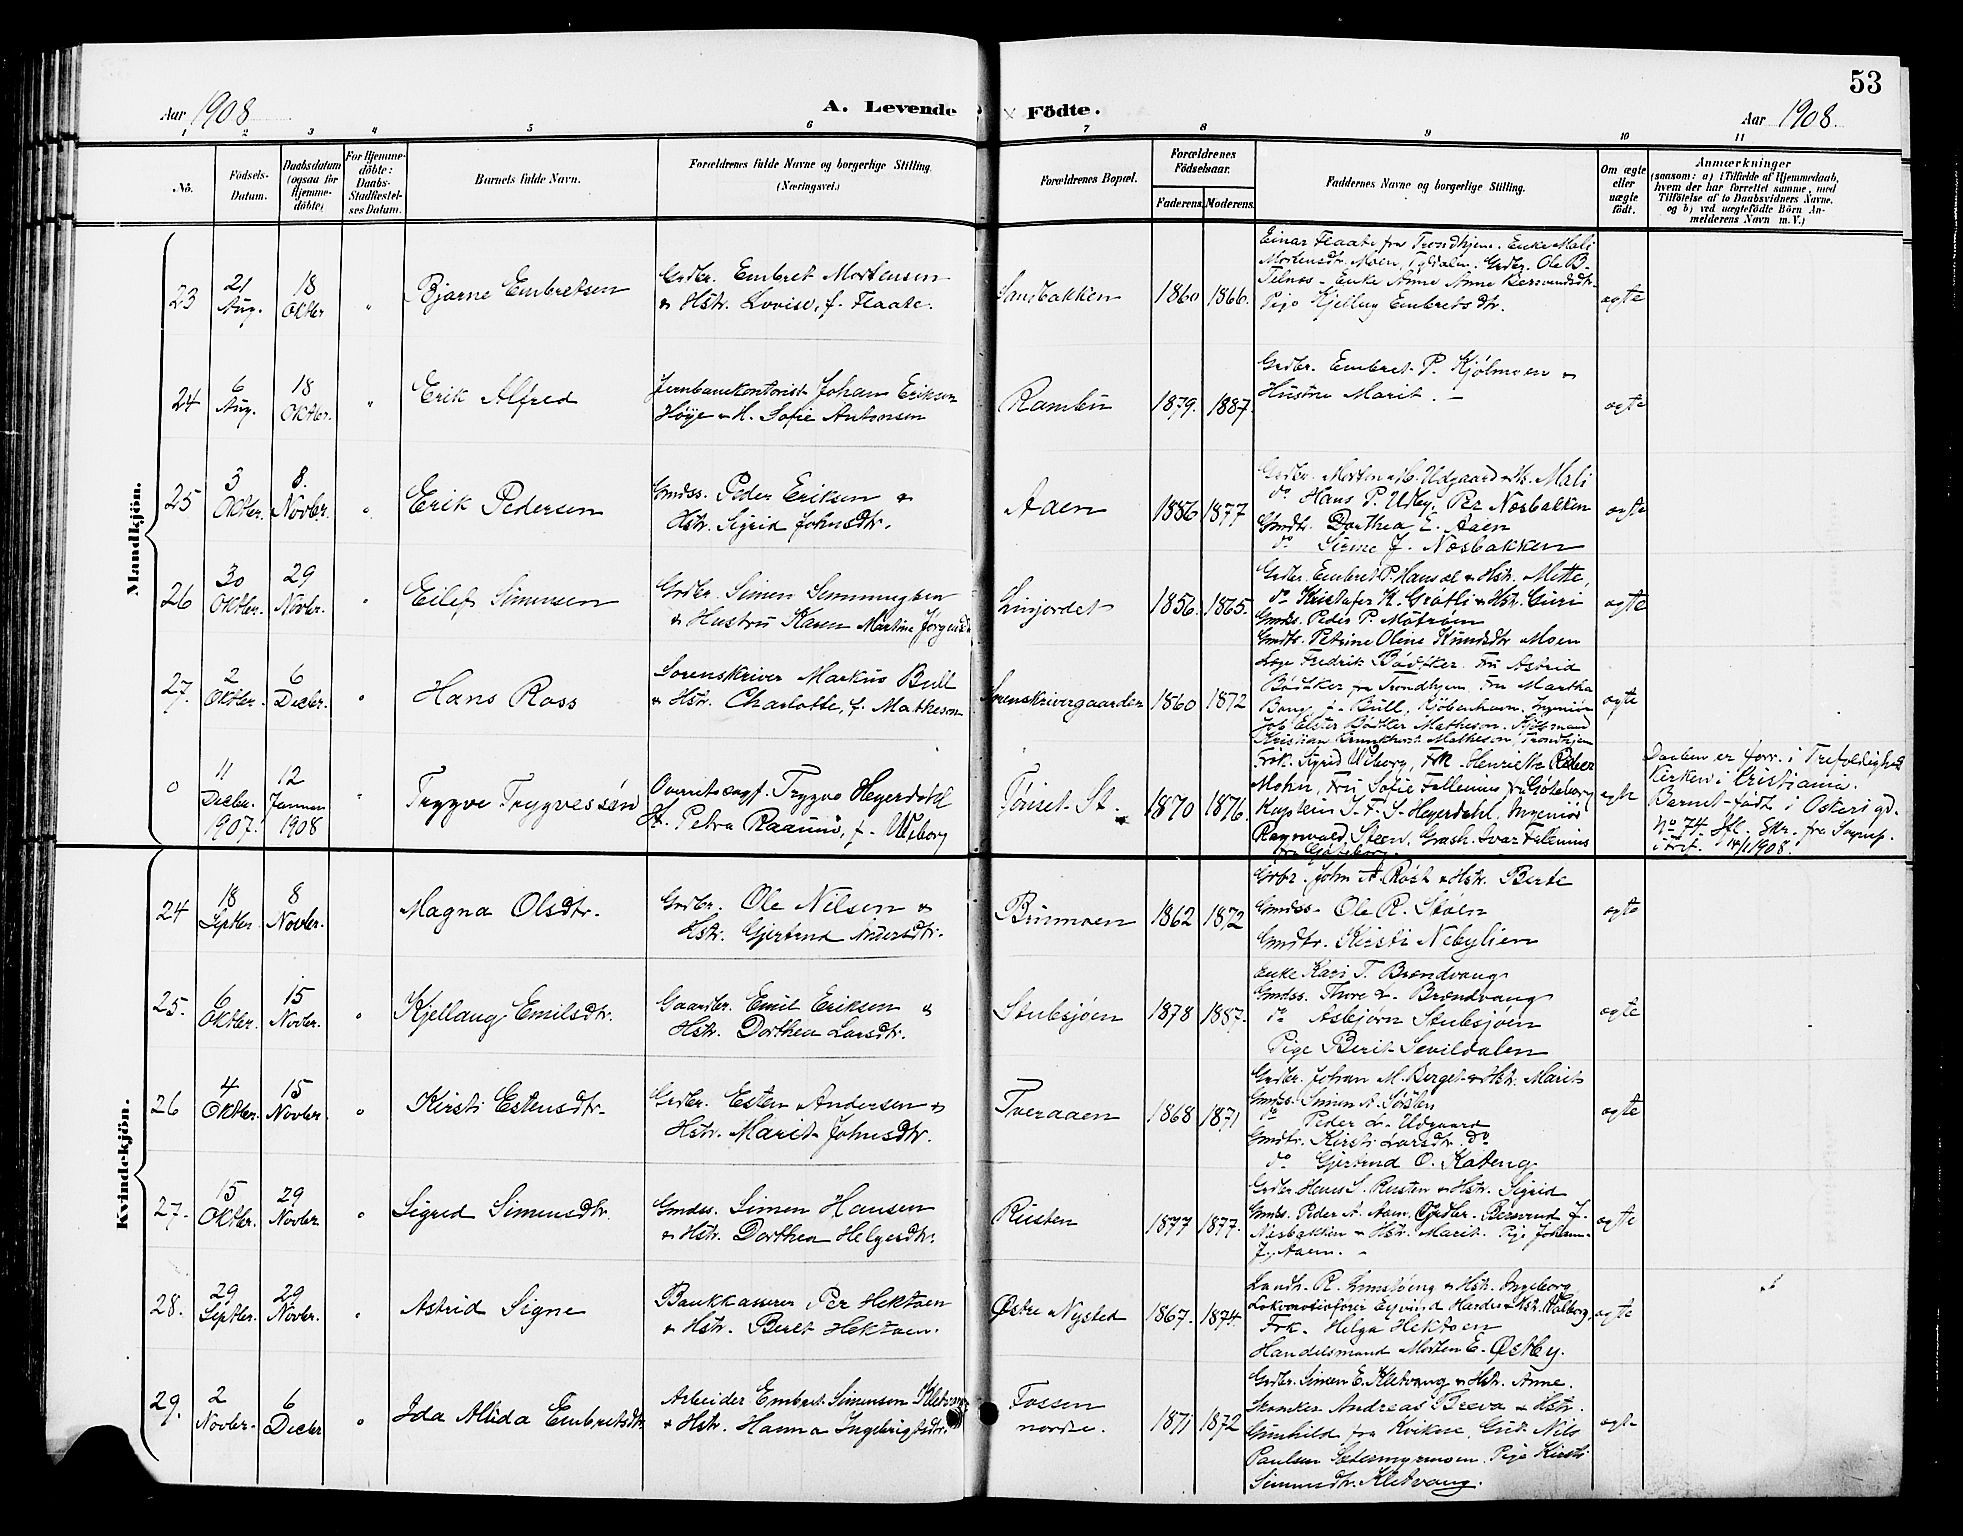 53
Aar 1908
A. Levende Födte.
Aar 1908.
1 2 3 4 5 6 7 8 9 10 11
No.
Födsels-
Datum.
Daabsdatum
(ogsaa for
Hjemme-
döbte)
For Hjemme-
döbte:
Daabs-
Stadfæstel-
ses Datum.
Barnets fulde Navn.
Forældrenes fulde Navne og borgerlige Stilling
(Næringsvei.)
Forældrenes Bopæl.
Forældrenes
Födselsaar.
Faderens Moderens
Faddernes Navne og borgerlige Stilling.
Om ægte
eller
uægte
födt.
Anmærkninger
(saasom: a) i Tilfælde af Hjemmedaab,
hvem der har forrettet samme, med
Tilföielse af to Daabsvidners Navne.
og b) ved uægtefödte Börn An-
melderens Navn m. V.)
Mandkjön.
23
21
Aug.
18
Oktbr
"
Bjarne Embretsen
Grdbr. Embret Mortensen
& Hstr. Lovise, f. Flaate.
Sandbakken
1860
1866.
Einar Flaate fra Trondhjem. Enke Mali
Mortensdtr. Moen, Tyldalen. Grdbr. Ole B.
Telnes - Enke Anne Bersvendsdtr.
Pige Kjellaug Embretsdtr.
ægte
24
6
Aug.
18
Oktbr.
"
Erik Alfred
Jernbanekontorist Johan Eriksen
Høye & H. Sofie Antonsen
Rambu
1879.
1887.
Grdbr. Embret P. Kjølmoen &
Hustru Marit. -
ægte
25
3
Oktbr.
8.
Novbr.
"
Erik Pedersen
Gmdss. Peder Eriksen &
Hstr. Sigrid Johnsdtr.
Aaen
1886
1877
Grdbr. Morten M. Udgaard & H. Mali
do Hans P. Udby. Per Næsbakken
Gmdtr. Dorthea E. Aaen
do J. Næsbakken
ægte
26
30
Oktbr.
29
Novbr.
"
Eilef Simensen
Grdbr. Simen
& Hustru Karen Martine Jørgensd
Linjordet
1856.
1865.
Grdbr. Embret P. Hansæl & Hstr. Mette,
do Kristofer K. Grøtli & Hstr. Guri
Gmdss. Peder P. Motrøen
Gmdtr. Petrine Oline Knudsdtr Moen
ægte
27.
2
Oktbr.
6
Decbr.
"
Hans Ross
Sorenskriver Markus Bull
& Hstr. Charlotte, f. Matheson
Sorenskrivergaarden
1860
1872
Læge Fredrik Bödtker. Fru Astrid
Bödtker fra Trondhjem Fru Martha
Bang f. Bull, Kjöbenhavn. Ingeniör
Joh. Elster Bödtker Matheson.
Kristian Matheson, Trondhjem
ægte
0
11
Decbr.
1907.
12
Januar
1908
"
Tryggve Tryggvessøn
Overretssagf. Tryggve Heyerdahl
H. Petra Raamu, f. Wiborg
Tønset St.
1870
1876.
Frk. Sigrid Wiborg, Frk. Henriette
Mohn, Fru Sofie Fallenius fra Göteborg
Kaptein J. F. S. Heyerdahl, Ingeniör
Ragnvald Steen, Grosh. Ivar Fallenius
fra Göteborg.
ægte
Daaben er forr. i Trefoldighed
Kirken i Cristiania.
Barnet født i Oskers gd.
No 74. Ifl. Skr. fra Sognep.
i Tref. 14/1 1908.
Kvindekjön.
24
18
Septbr.
8
Novbr.
Magna Olsdtr.
Grdbr. Ole Nilsen &
Hstr. Gjertrud Andersdtr.
Brunmoen
1862
1872
Grdbr. John A. Røst & Hstr. Berte
Gmdss. Ole R. Støen
Gmdtr. Kirsti Nebylien
ægte
25.
6
Oktbr.
15
Novbr.
"
Kjellaug Emilsdtr.
Gaardbr. Emil Eriksen &
Hstr. Dorthea Larsdtr.
Stubsjøen
1878
1887.
Enke Kari T. Brændvang
Gmdss. Thore L. Brændvang
do Asbjørn Stubsjøen
Pige Berit Sevildalen
ægte
26
4
Oktbr.
15
Novbr.
"
Kirsti Estensdtr.
Grdbr. Esten Andersen &
Hstr. Marit Johnsdtr.
Tveraaen
1868
1871
Grdbr. Johan M. Berget & Hstr. Marit
Gmdss. Simen A.
do Peder L. Udgaard
Gmdtr. Kirsti Larsdtr. do
do Gjertrud O. Kateng
ægte
27.
15
Oktbr.
29
Novbr.
"
Sigrid Simensdtr.
Gmdss. Simen Hansen
& Hstr. Dorthea Helgesdtr.
Rusten
1877
1877.
Grdbr Hans S. Rusten & Hstr. Sigrid
Gmds. Peder A. Aaen. Grdbr. Bersvend J.
Næsbakken & Hstr. Marit. Pige Johanne
J. Aaen. -
ægte
28.
29
Septbr.
29
Novbr.
"
Astrid Signe
Bankkasserer Per Hektoen
& Hstr. Beret Hektoen.
Østre Nysted
1867.
1874.
Landh. R. & Hstr. Ingeborg
Lokomotivfører Eyvind & Hstr. Valborg,
Frk. Helga Hektoen
Handelsmand Morten E. Østby.
ægte
29.
2
Novbr.
6
Decbr
"
Ida Alida Embretsdtr.
Arbeider Embret Simensen Kletvang
& Hstr. Hanna Ingebrigtsdtr.
Fossen
nordre.
1871
1872
Grdbr. Simen E. Kletvang & Hstr. Anne.
Skomker Andreas Breva & Hstr.
Gunhild fra Kvikne, Grdb. Nils
Paulsen Sætermyrmoen. Pige Kirsti
Simensdtr. Kletvang.
ægte